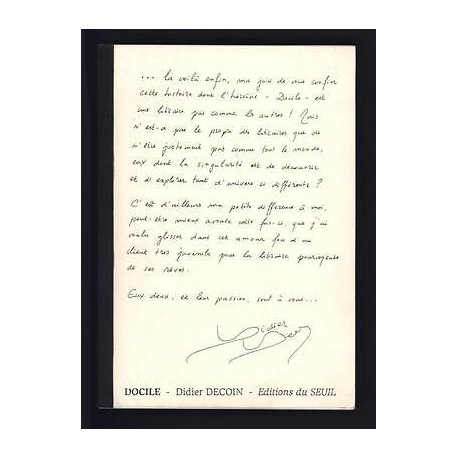 ... la voilà enfin, ma joie de vous confier
cette histoire dont l'héroïne - Docile - est
une libraire pas comme les autres ! Mais
n'est-ce pas le propre des libraires que de
n'être justement pas comme tout le monde,
eux dont la singularité est de découvrir
et d'explorer tant d'univers si différents ?
C'est d'ailleurs ma petite différence à moi,
peut-être mieux avouée cette fois-ci, que j'ai
voulu glisser dans cet amour fou d'un
client très juvénile pour la libraire
de ses rêves.
Eux deux, et leur passion, sont à vous...
Didier Decoin
DOCILE - Didier DECOIN - Editions du SEUIL